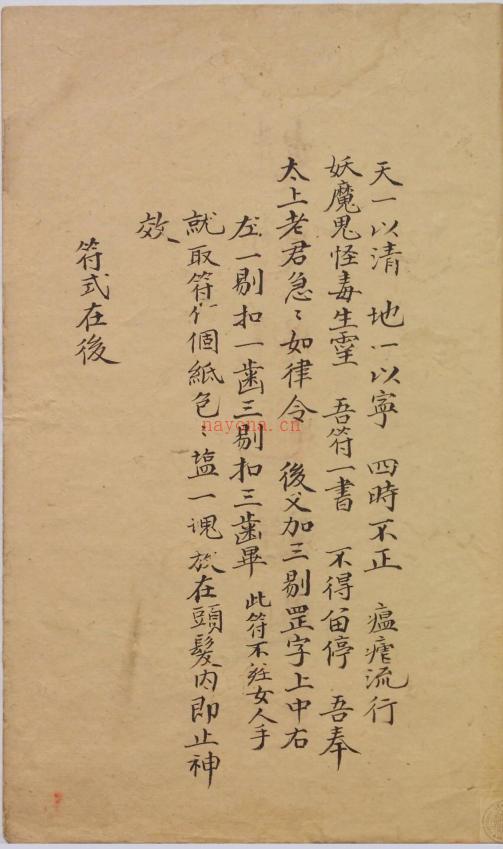 天一以清 地一以寧 四時不正 瘟瘧流行
妖魔鬼怪毒生靈 吾符一書 不得畱停 吾奉
太上老君急〻如律令 後又加三剔罡字上中右
左一剔扣一齒三剔扣三齒畢 此符不經女人手
就取符作個紙包〻塩一塊放在頭髮內即止神
效
符式在後
nayona.cn